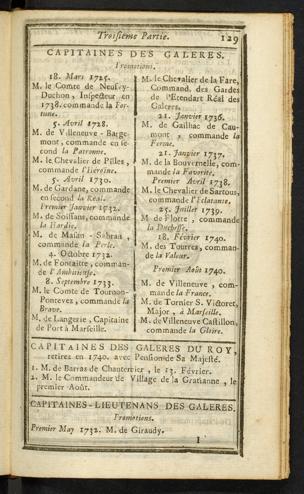 Troisiéme Partie. 129
CAPITAINES DES GALERES.
Promotions.
18. Mars 1725.
M. le Comte de
Duchon, Inspecteur en
1738. commande la For-
tune.
5. Avril 1728.
M. de Villeneuve - Barge-
mont, commande en se-
cond la Patronne.
M. le Chevalier de Pilles,
commande l'Heroïne.
5. Avril 1730.
M. de Gardane, commande
en second la Réal.
Premier Janvier 1732.
M. de Soissans, commande
la Hardie.
M. de Malin - Sabran,
commande la Perle.
4. Octobre 1732.
M. de Fontaitte, comman-
de l'
8. Septembre 1733.
M. le Comte de Tournon-
Pontevez, commande la
Brave.
M. de Langerie, Capitaine
de Port à Marseille.
M. le Chevalier de la Fare,
Command. des Gardes
de l'Etendart Réal des
Galeres.
21. Janvier 1736.
M. de Gailhac de Cau-
mont, commande la
Ferme.
21. Janvier 1737.
M. de la Bouvernelle, com-
mande la Favorite.
Premier Avril 1738.
M. le Chevalier de Sartous,
commande l'Eclatante.
25. Juillet 1739.
M. de Flotte, commande
la Duchesse.
18. Février 1740.
M. des Tourres, comman-
de la Valeur.
Premier Août 1740.
M. de Villeneuve, com-
mande la France.
M. de Tornier S. Victoret,
Major, à Marseille.
M. de Villeneuve Castillon,
commande la Gloire.
CAPITAINES DES GALERES DU ROY,
retirez en 1740. avec Pension de Sa Majesté.
1. M. de Barras de Chanterrier, le 13. Février.
2. M. le Commandeur de Village de la Grasianne, le
premier Août.
CAPITAINES-LIEUTENANS DES GALERES.
Promotions.
Premier May 1732. M. de Giraudy.
I